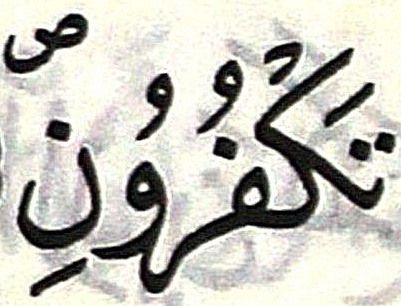 تَكْفُرُونِ ص